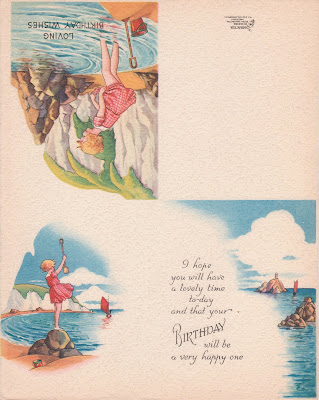 LOVING
BIRTHDAY WISHES
I hope
you will have
a lovely time
to-day
and that your -
BIRTHDAY
will be
a very happy one